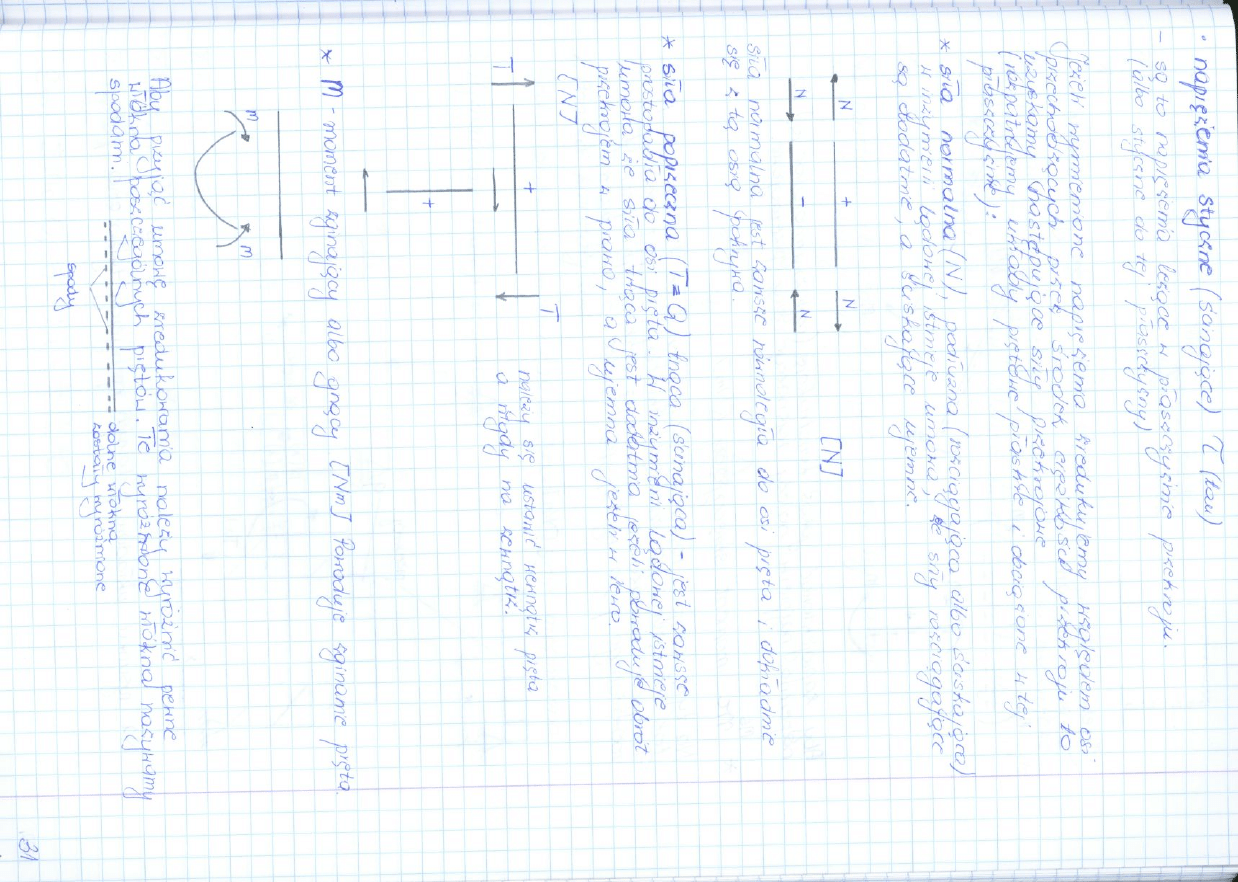 • naprężenia styczne (ścinające) τ (tau)
– są to naprężenia leżące w płaszczyźnie przekroju.
(albo styczne do tej płaszczyzny)
Jeżeli wymienione naprężenia zredukujemy względem osi
przechodzących przez środek ciężkości przekroju to
uzyskamy następujące siły przekrojowe
(rozpatrujemy układy prętowe płaskie i obciążone w tej
płaszczyźnie):
* siła normalna (N), podłużna (rozciągająca albo ściskająca)
w inżynierii lądowej istnieje umowa, że siły rozciągające
są dodatnie, a ściskające ujemne.
N + N
[N]
N - N
siła normalna jest zawsze równoległa do osi pręta i dokładnie
się z tą osią pokrywa.
* siła poprzeczna (T=Q) tnąca (ścinająca) - jest zawsze
prostopadła do osi pręta. W inżynierii lądowej istnieje
umowa że siła tnąca jest dodatnia jeżeli powoduje obrót
przekrojem w prawo, a ujemna jeżeli w lewo.
[N]
T + T
należy się ustawić wewnątrz pręta
a nigdy na zewnątrz.
+
* M - moment zginający albo gnący [Nm] Powoduje zginanie pręta.
M M
Aby przyjąć umowę znakowania należy wyróżnić pewne
włókna poszczególnych prętów. Te wyróżnione włókna nazywamy
spodami.
dolne włókna
zostały wyróżnione
spody
31